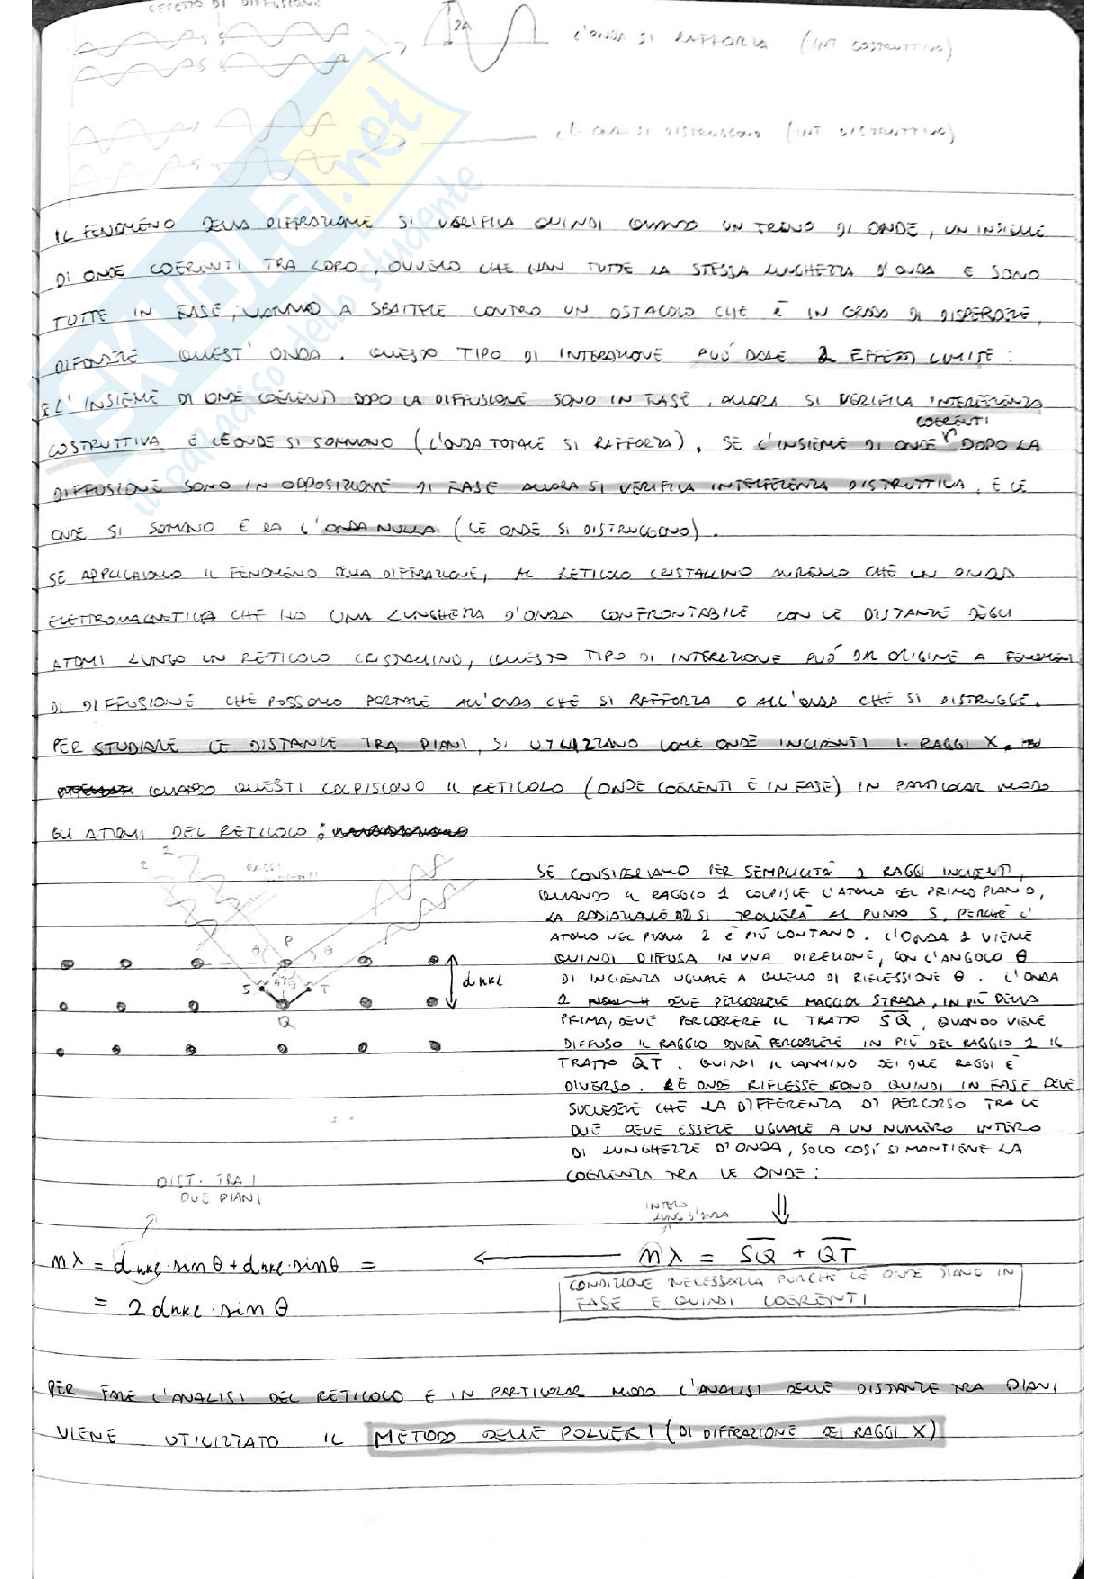 EFFETTO DI DIFFUSIONE
2A
L'ONDA SI RAFFORZA (INT COSTRUTTIVA)
LE ONDE SI DISTRUGGONO (INT DISTRUTTIVA)
IL FENOMENO DELLA DIFFRAZIONE SI VERIFICA QUINDI QUANDO UN TRENO DI ONDE, UN INSIEME
DI ONDE COERENTI TRA LORO, OVVERO CHE HAN TUTTE LA STESSA LUNGHEZZA D'ONDA E SONO
TUTTE IN FASE, VANNO A SBATTERE CONTRO UN OSTACOLO CHE È IN GRADO DI DISPERDERE,
DIFONDERE QUEST'ONDA. QUESTO TIPO DI INTERAZIONE PUÓ DARE 2 EFFETTI LIMITE:
L'INSIEME DI ONDE COERENTI DOPO LA DIFFUSIONE SONO IN FASE, ALLORA SI VERIFICA INTERFERENZA
COSTRUTTIVA E LE ONDE SI SOMMANO (L'ONDA TOTALE SI RAFFORZA), SE L'INSIEME DI ONDE COERENTI DOPO LA
DIFFUSIONE SONO IN OPPOSIZIONE DI FASE ALLORA SI VERIFICA INTERFERENZA DISTRUTTIVA, E LE
ONDE SI SOMMANO E DA L'ONDA NULLA (LE ONDE SI DISTRUGGONO).
SE APPLICHIAMO IL FENOMENO DELLA DIFFRAZIONE, AL RETICOLO CRISTALLINO AVREMO CHE UN ONDA
ELETTROMAGNETICA CHE HA UNA LUNGHEZZA D'ONDA CONFRONTABILE CON LE DISTANZE DEGLI
ATOMI LUNGO UN RETICOLO CRISTALLINO, QUESTO TIPO DI INTERAZIONE PUÓ DAR ORIGINE A FENOMENI
DI DIFFUSIONE CHE POSSONO PORTARE ALL'ONDA CHE SI RAFFORZA O ALL'ONDA CHE SI DISTRUGGE.
PER STUDIARE LE DISTANZE TRA PIANI, SI UTILIZZANO COME ONDE INCIDENTI I RAGGI X.
QUANDO QUESTI COLPISCONO IL RETICOLO (ONDE COERENTI E IN FASE) IN PARTICOLAR MODO
GLI ATOMI DEL RETICOLO:
2
RAGGI
P
θ
θ
S
T
Q
dhkl
SE CONSIDERIAMO PER SEMPLICITÀ 2 RAGGI INCIDENTI,
QUANDO IL RAGGIO 1 COLPISCE L'ATOMO DEL PRIMO PIANO,
LA RADIAZIONE 2 SI TROVERÀ AL PUNTO S, PERCHÈ L'
ATOMO NEL PIANO 2 È PIÚ LONTANO. L'ONDA 1 VIENE
QUINDI DIFFUSA IN UNA DIREZIONE, CON L'ANGOLO θ
DI INCIDENZA UGUALE A QUELLO DI RIFLESSIONE θ. L'ONDA
2 DEVE PERCORRERE MAGGIOR STRADA, IN PIÚ DELLA
PRIMA, DEVE PERCORRERE IL TRATTO SQ, QUANDO VIENE
DIFFUSO IL RAGGIO DOVRÀ PERCORRERE IN PIÚ DEL RAGGIO 1 IL
TRATTO QT. QUINDI IL CAMMINO DEI DUE RAGGI È
DIVERSO. LE ONDE RIFLESSE SONO QUINDI IN FASE DEVE
SUCCEDERE CHE LA DIFFERENZA DI PERCORSO TRA LE
DUE DEVE ESSERE UGUALE A UN NUMERO INTERO
DI LUNGHEZZE D'ONDA, SOLO COSÍ SI MANTIENE LA
COERENZA TRA LE ONDE:
DIST. TRA I
DUE PIANI
INTERO
LUNG D'ONDA
nλ = dhkl·sinθ + dhkl·sinθ =
nλ = SQ + QT
= 2dhkl·sinθ
CONDIZIONE NECESSARIA PERCHÈ LE ONDE SIANO IN
FASE E QUINDI COERENTI
PER FARE L'ANALISI DEL RETICOLO E IN PARTICOLAR MODO L'ANALISI DELLE DISTANZE TRA PIANI
VIENE UTILIZZATO IL METODO DELLE POLVERI (DI DIFFRAZIONE DEI RAGGI X)
SKUOLA.net
il paradiso dello studente